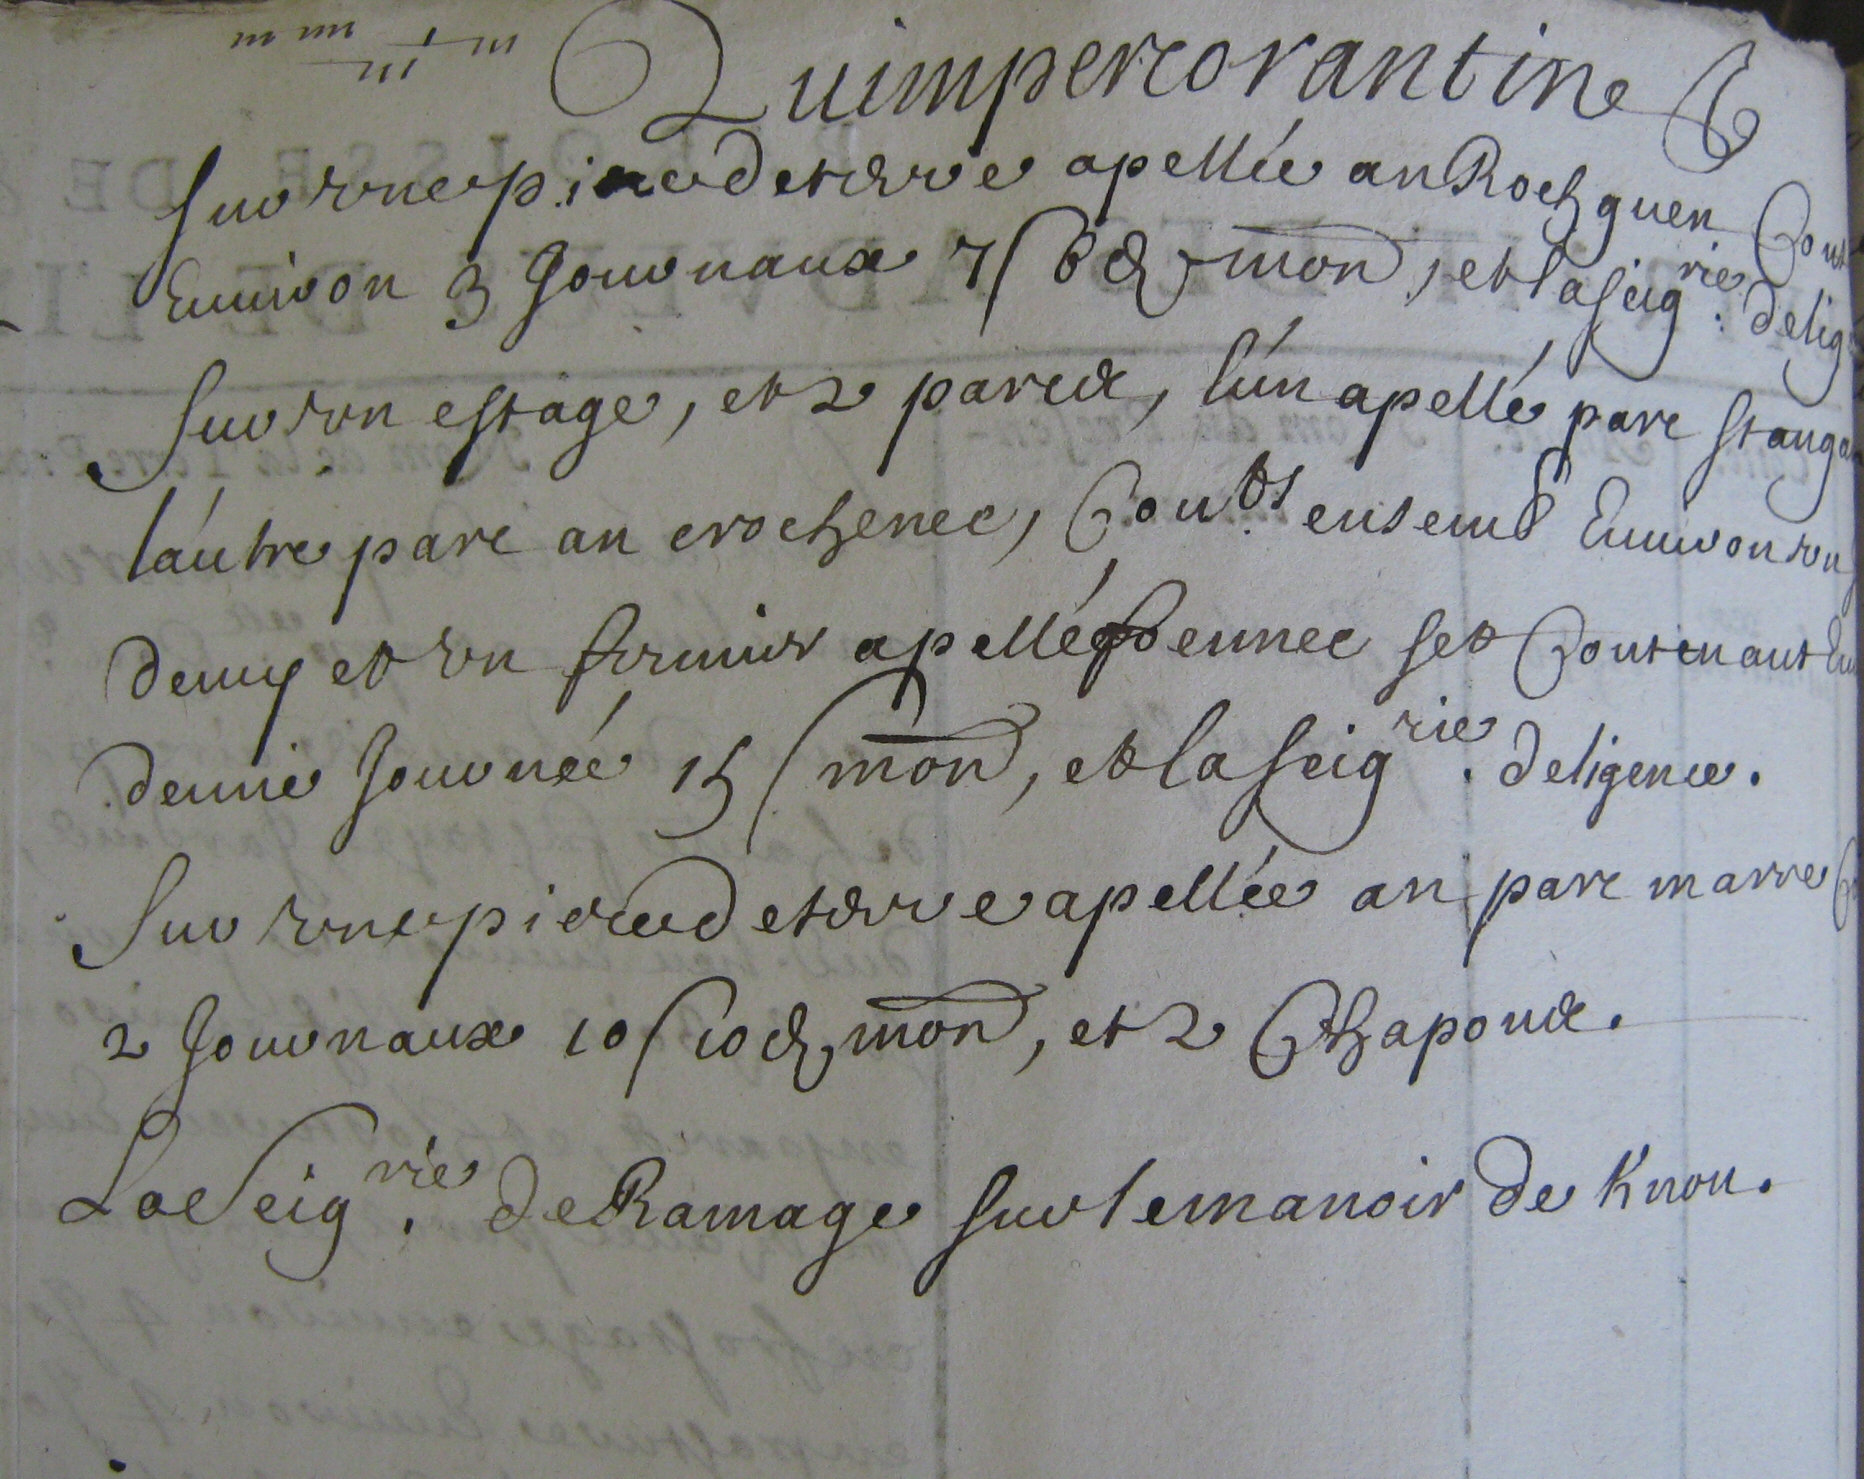 Quimpercorantine
Sur une piece de terre apellée an Rochguen Cont
Environ 3 Journaux 7 s 6 d mon, et la seig rie. delig
Sur un estage, et 2 parcs, l'un apellé parc stanga
l'autre parc an crochenec, Contts ensemb Environ un
demy et un fermier apellé ennec Contenant
demie Journée 15 s mon, et la seig rie. deligence.
Sur une piece de terre apellée an parc marre
2 Journaux 10 s 10 d mon, et 2 Chapons.
La Seig rie. de Ramage sur le manoir de Knou.